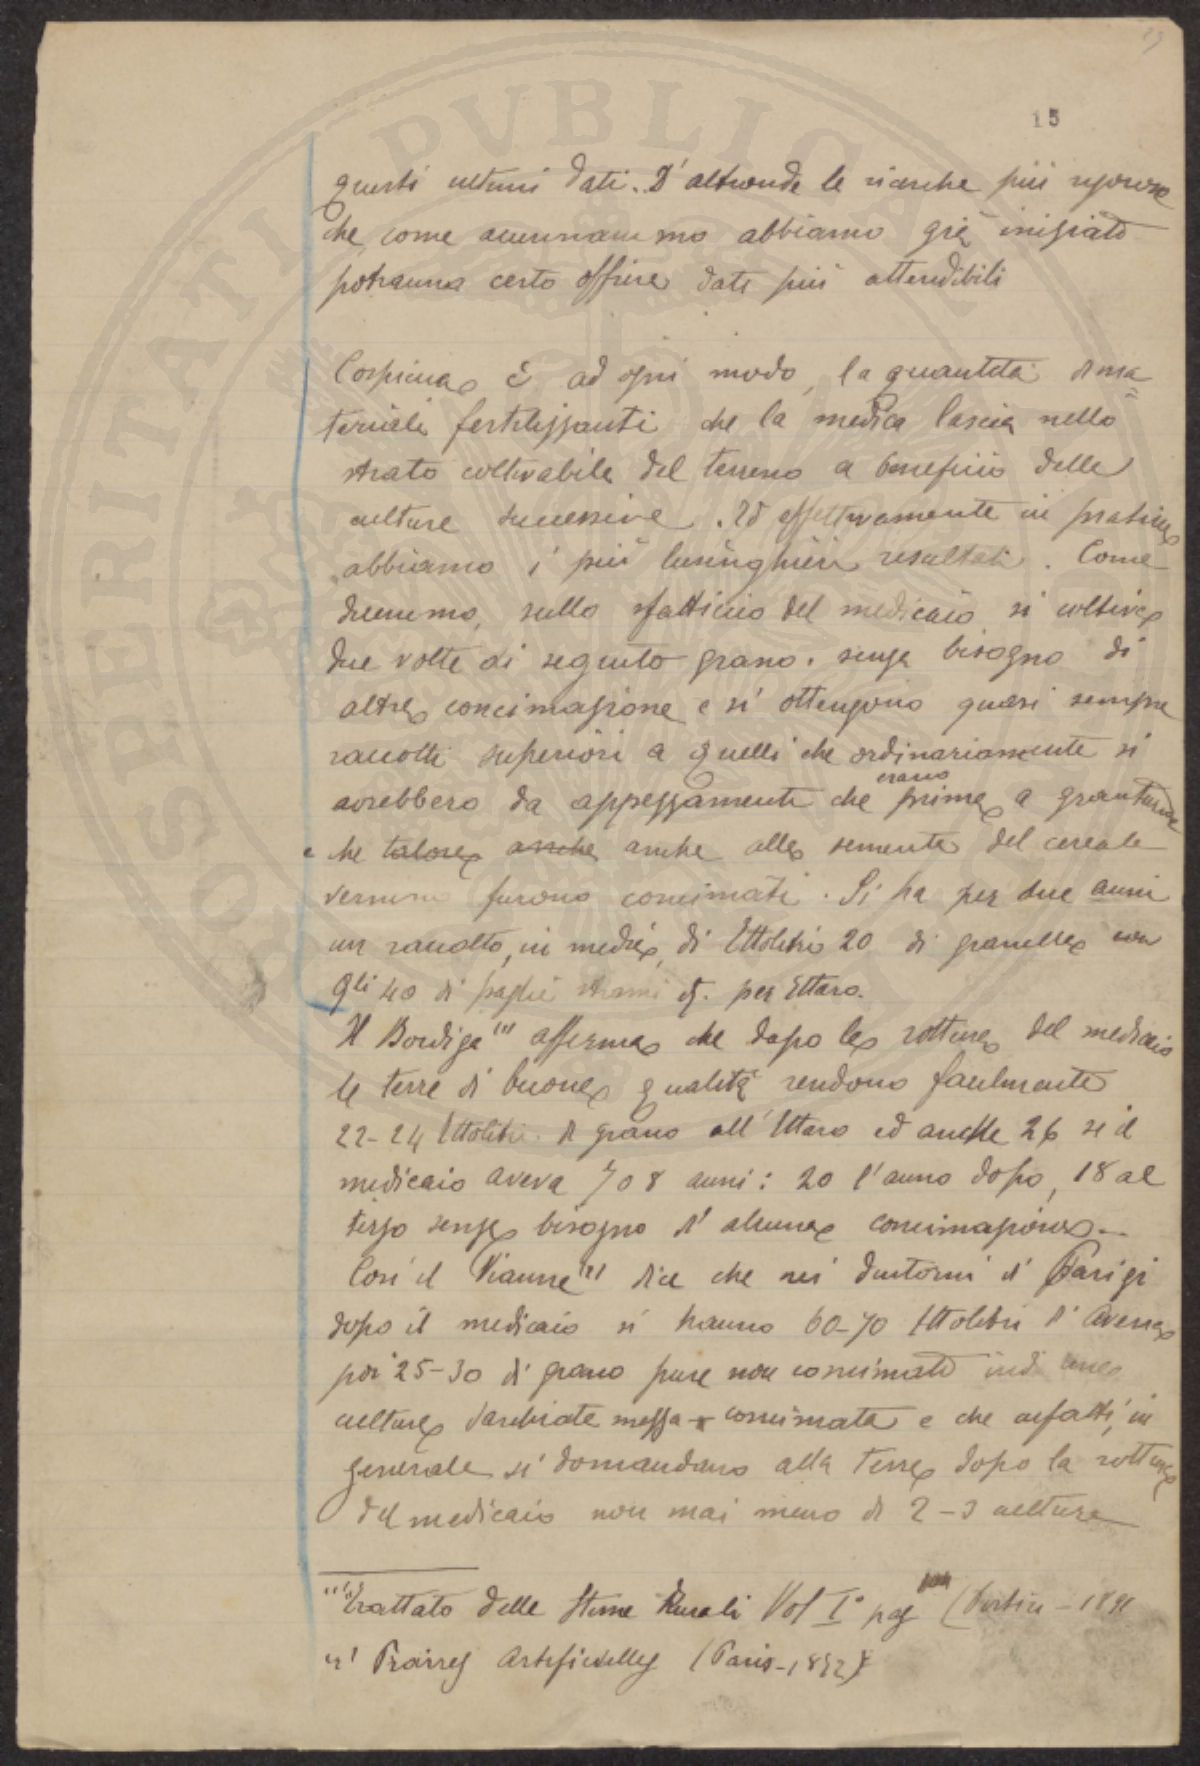 15
questi ultimi dati. D'altronde le ricerche più rigorose
che, come accennammo abbiamo già iniziato
potranno certo offrire dati più attendibili
Cospicua è ad ogni modo, la quantità di ma=
teriali fertilizzanti che la medica lascia nello
strato coltivabile del terreno a beneficio delle
culture successive. Ed effettivamente in pratica
abbiamo i più lusinghieri resultati. Come
dicemmo, sullo sfatticcio del medicaio si coltiva
due volte di seguito grano. senza bisogno di
altra concimazione e si ottengono quasi sempre
raccolti superiori a quelli che ordinariamente si
avrebbero da appezzamenti che erano prima a granturco
e che talora anche anche alla sementa del cereale
vernino furono concimati. Si ha per due anni
un raccolto, in media, di Ettolitri 20 di granella con
Qli 40 di paglie strami &. per Ettaro.
Il Bordiga (1) afferma che dopo la rottura del medicaio
le terre di buona qualità rendono facilmente
22-24 Ettolitri di grano all'Ettaro ed anche 26 se il
medicaio aveva 7 o 8 anni: 20 l'anno dopo, 18 al
terzo senza bisogno d'alcuna concimazione.
Così il Vianne (2) dice che nei dintorni di Parigi
dopo il medicaio si hanno 60-70 Ettolitri d'avena
poi 25-30 di grano pure non concimato indi una
culture sarchiate mezza concimata e che infatti, in
generale si domandano alla terra dopo la rottura
del medicaio non mai meno di 2-3 culture
(1) Trattato delle Stime Rurali Vol I° pag (Portici - 1891
(2) Prairies Artificielles (Paris - 1872)
SOSPERITATI PVBLICAE